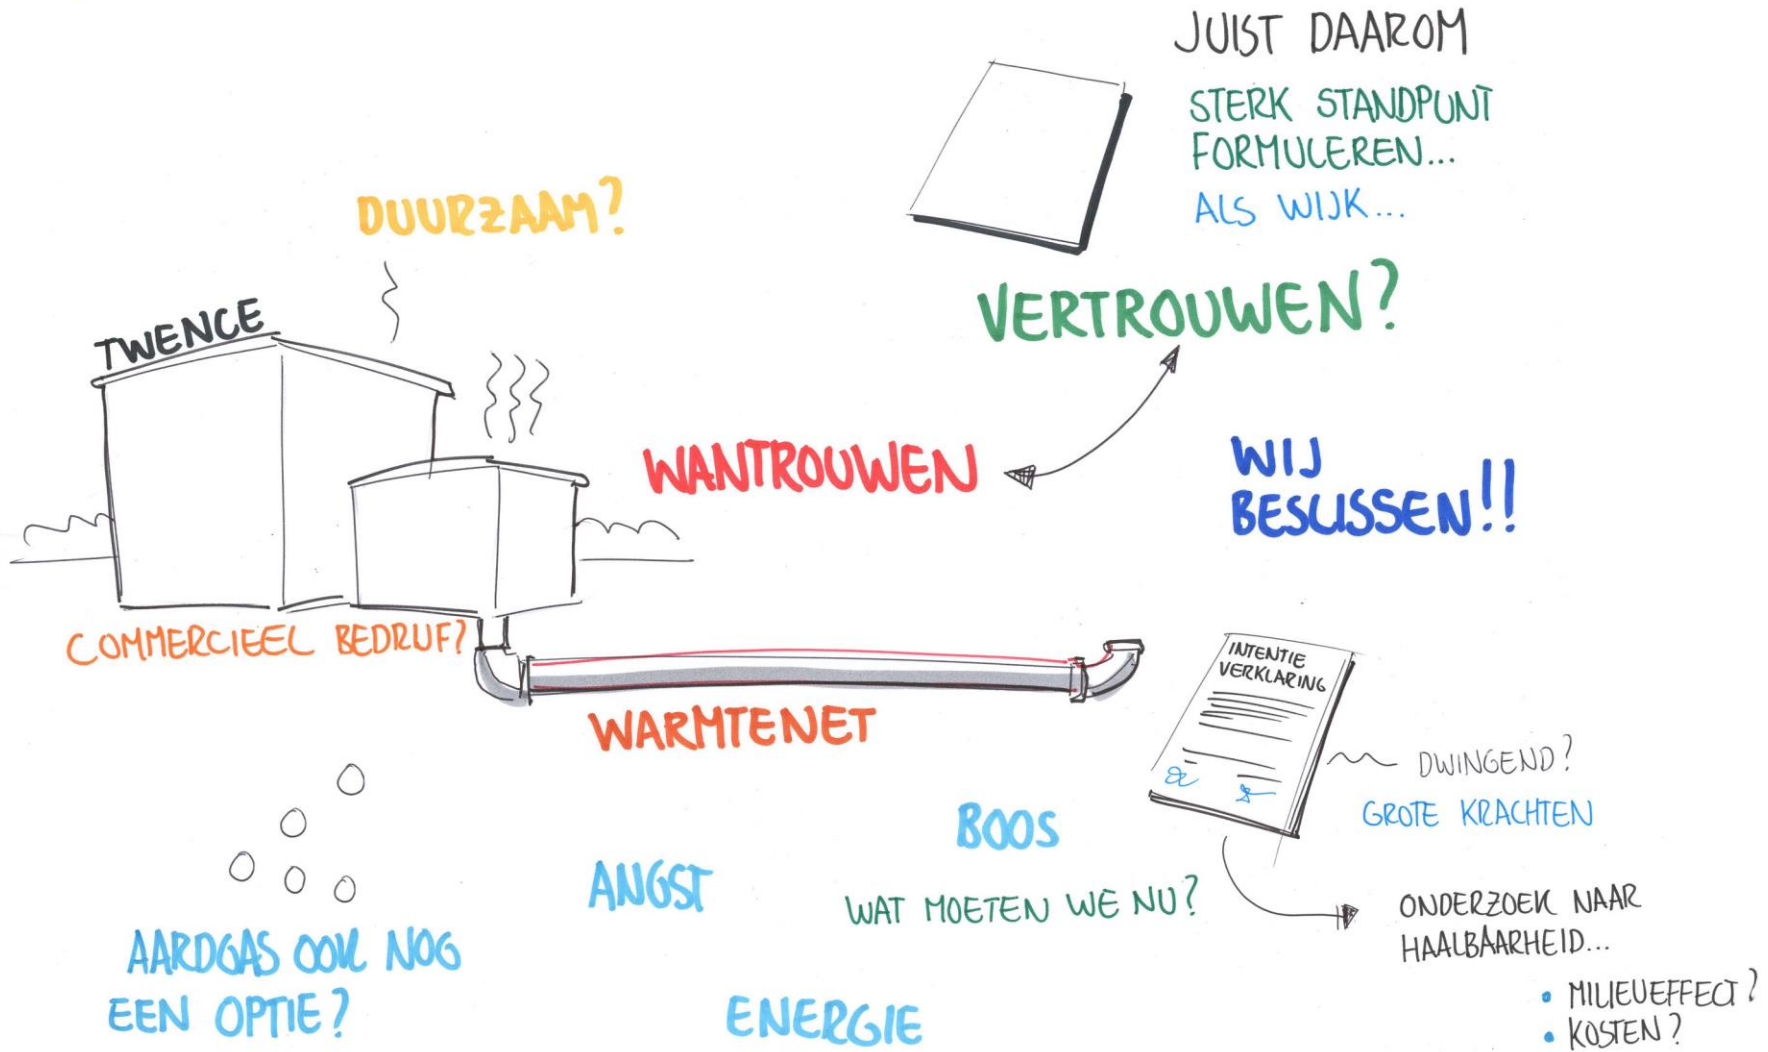 JUIST DAAROM
STERK STANDPUNT
FORMULEREN...
ALS WIJK...
DUURZAAM?
VERTROUWEN?
TWENCE
WANTROUWEN
WIJ
BESLISSEN!!
COMMERCIEEL BEDRIJF?
WARMTENET
INTENTIE
VERKLARING
DWINGEND?
GROTE KRACHTEN
BOOS
ANGST
WAT MOETEN WE NU?
ONDERZOEK NAAR
HAALBAARHEID...
• MILIEUEFFECT?
• KOSTEN?
AARDGAS OOK NOG
EEN OPTIE?
ENERGIE